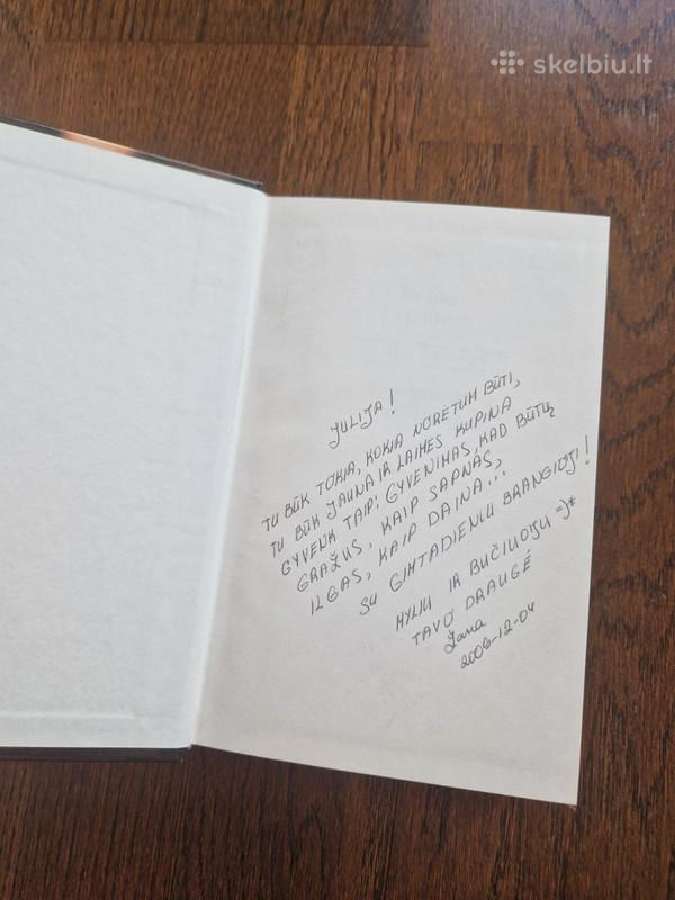 skelbiu.lt
JULIJA!
TU BŪK TOKIA, KOKIA NORĖTUM BŪTI,
TU BŪK JAUNA IR LAIMĖS KUPINA
GYVENK TAIP: GYVENIMAS, KAD BŪTŲ
GRAŽUS, KAIP SAPNAS,
ILGAS, KAIP DAINA...
SU GIMTADIENIU BRANGIOJI!
MYLIU IR BUČIUOJU =)*
TAVO DRAUGĖ
Jana
2006-12-04